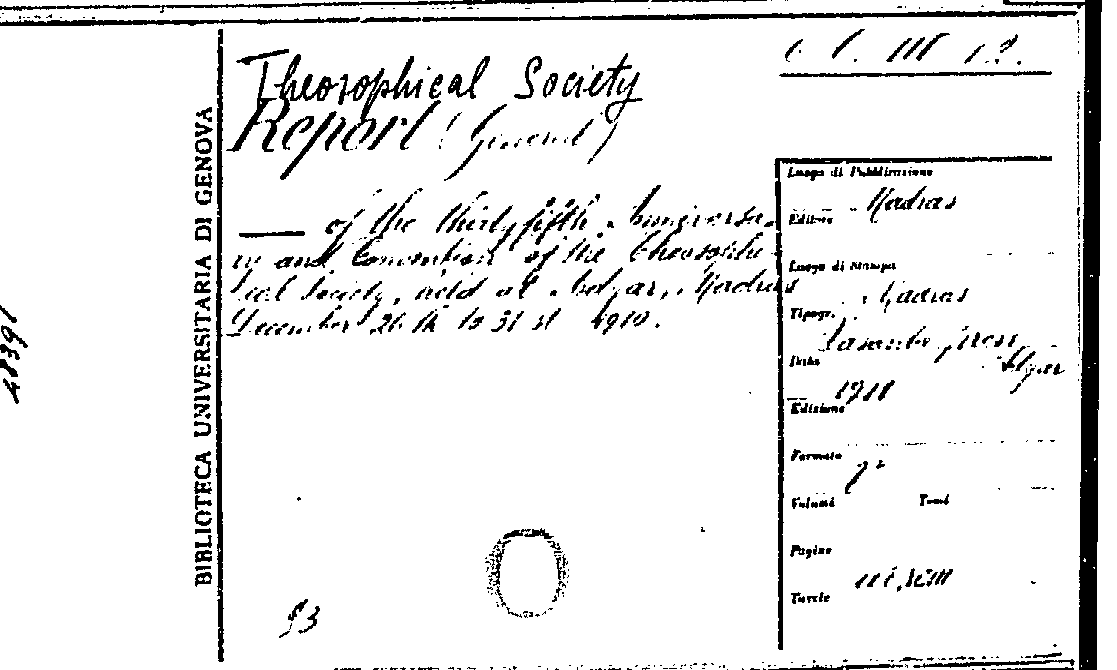 Theosophical Society
Report (General)
___ of the thirty fifth Anniversa-
ry and Convention of the Theosophi-
cal Society, held at Adyar, Madras
December 26 th to 31 st 1910.
BIBLIOTECA UNIVERSITARIA DI GENOVA
Luogo di Pubblicazione
Madras
Editore
Luogo di Stampa
Madras
Tipogr.
Vasanta press,
Adyar
Data
1911
Edizione
Formato
Volumi Tomi
Pagine
Tavole
93